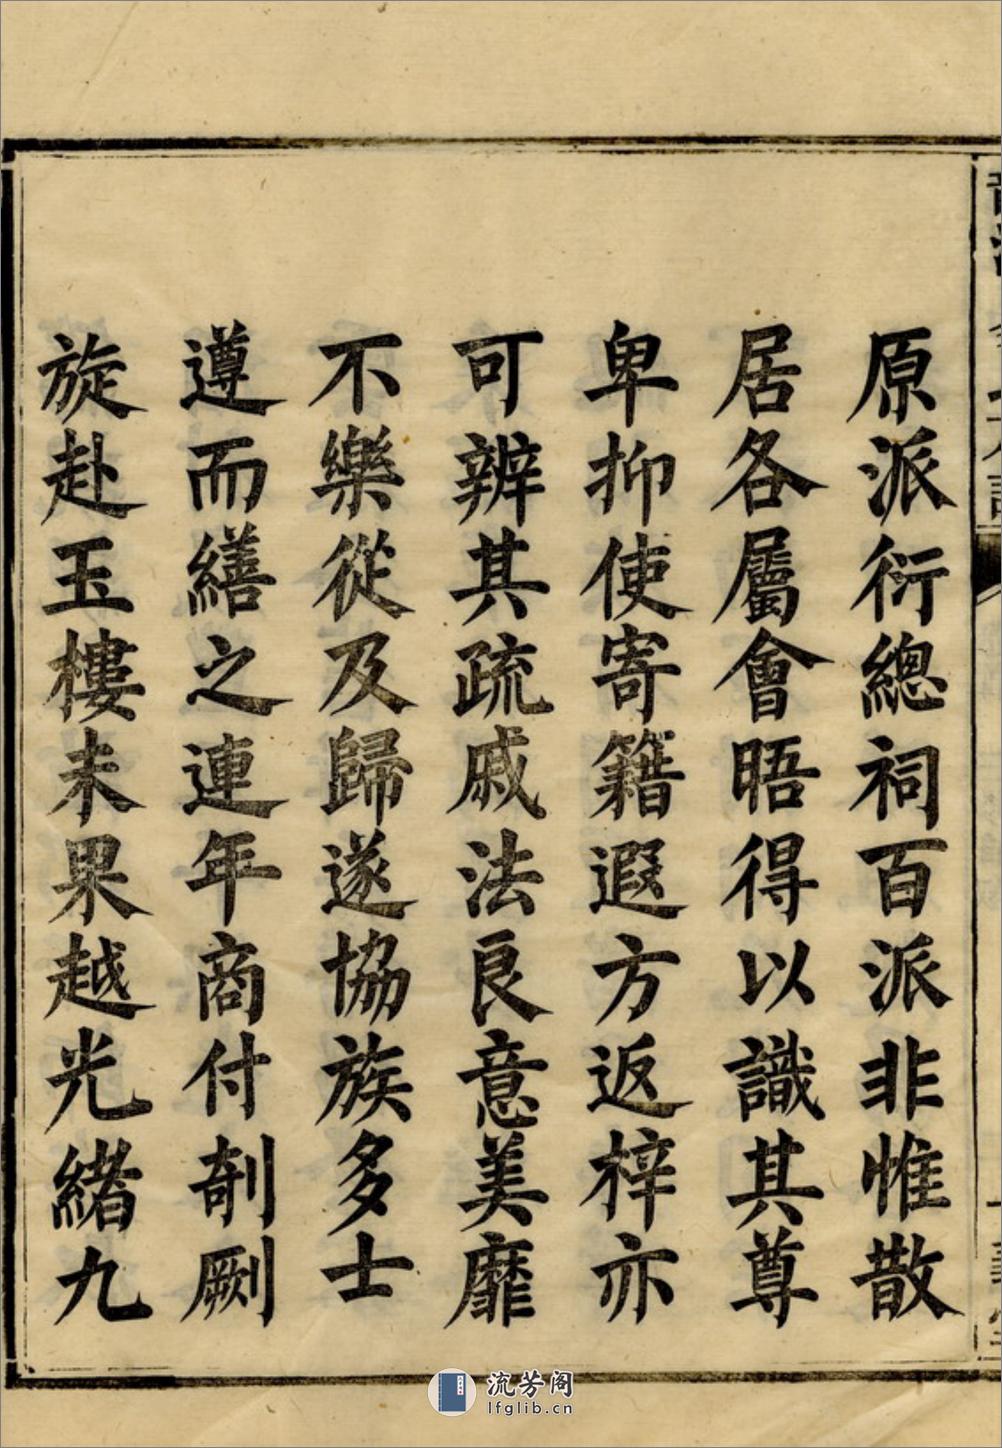 原派衍總祠百派非惟散
居各屬會晤得以識其尊
卑抑使寄籍遐方返梓亦
可辨其疏戚法良意美靡
不樂從及歸遂協族多士
遵而繕之連年商付剞劂
旋赴玉樓未果越光緒九
流芳阁
lfglib.cn